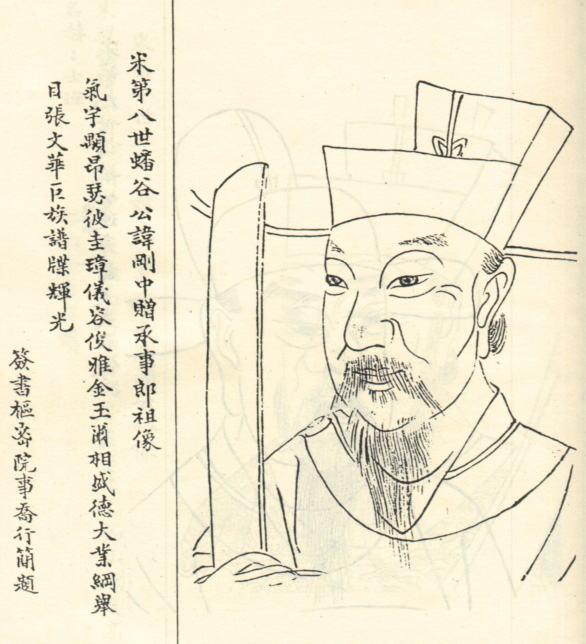 宋第八世蟠谷公諱剛中贈承事郎祖像
氣宇顯昂瑟彼圭璋儀容俊雅金玉滿相盛德大業綱舉
目張文華巨族譜牒輝光
簽書樞密院事喬行簡題